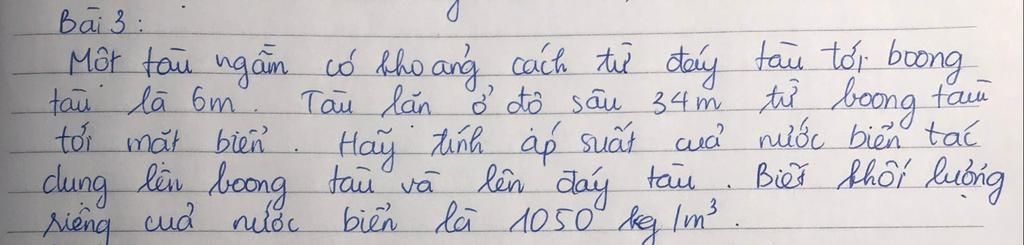 Bài 3 :
Một tàu ngầm có khoảng cách từ đáy tàu tới boong
tàu là 6m. Tàu lặn ở độ sâu 34m từ boong tàu
tới mặt biển. Hãy tính áp suất của nước biển tác
dụng lên boong tàu và lên đáy tàu. Biết khối lượng
riêng của nước biển là 1050 kg/m³.